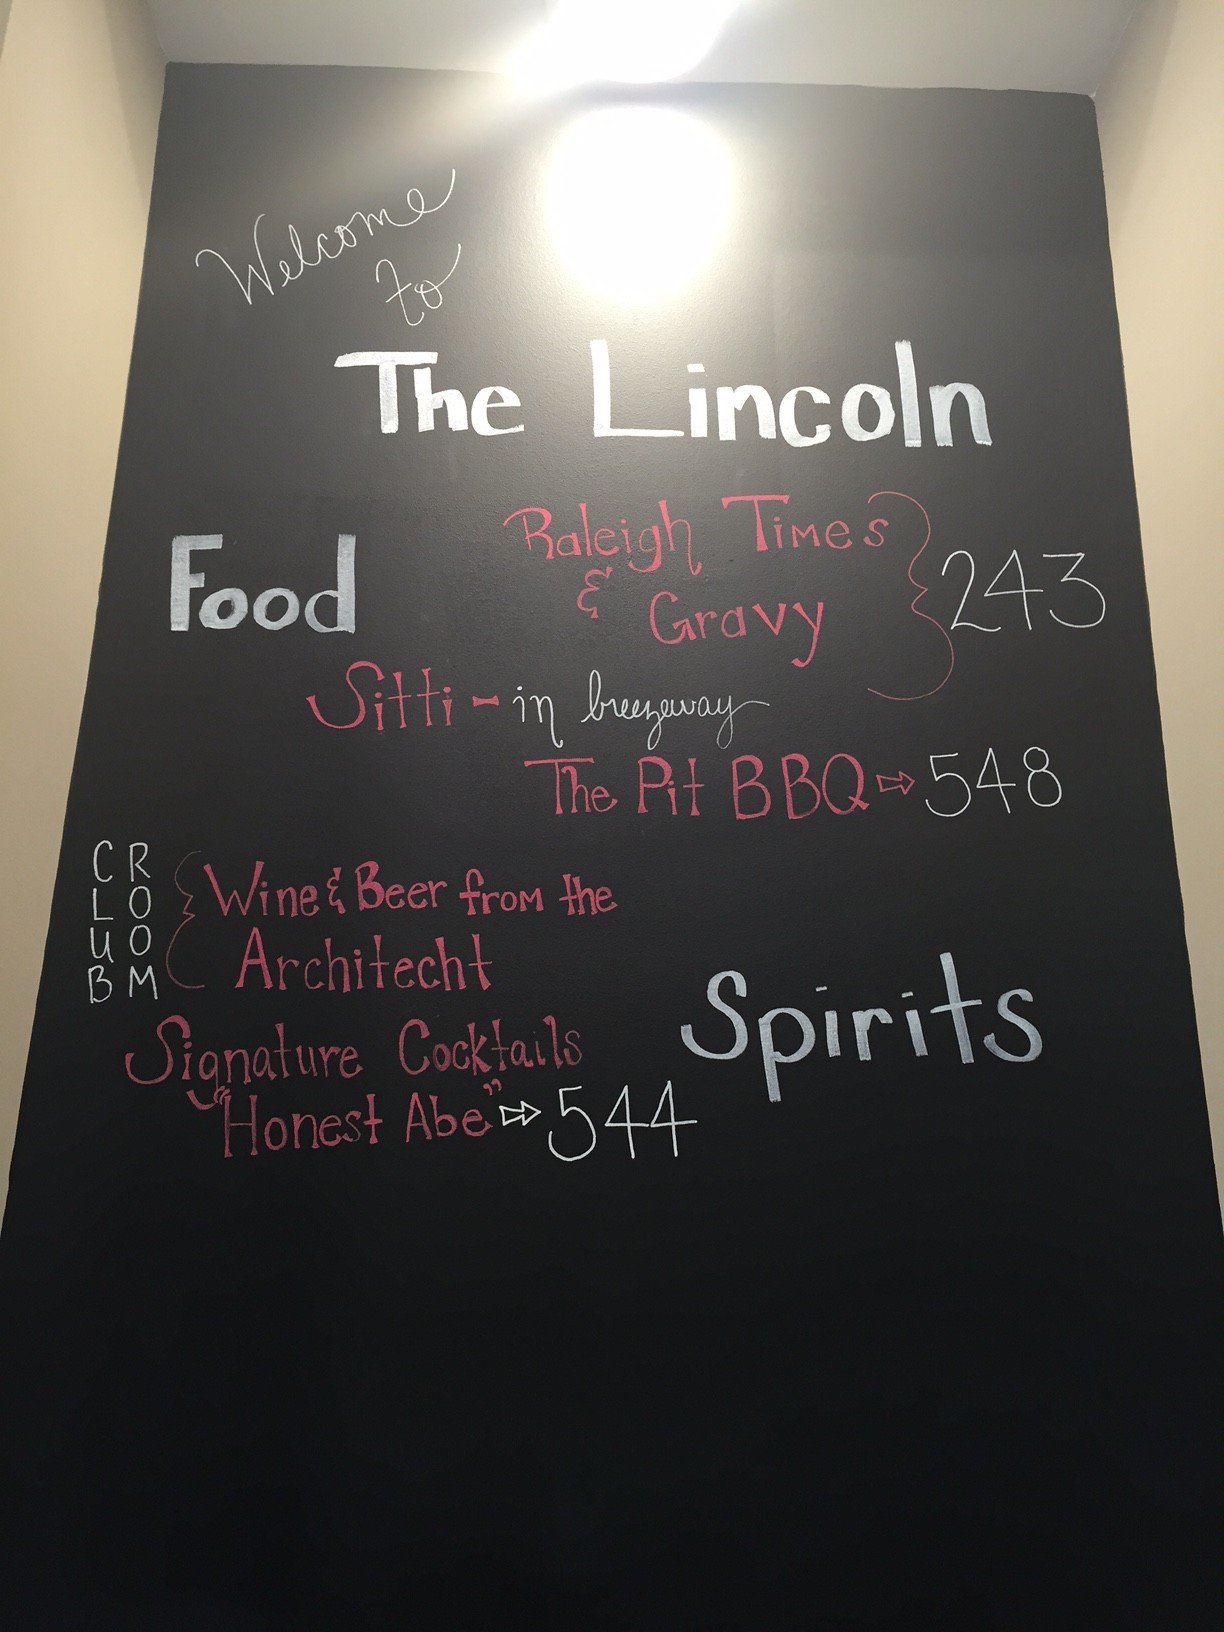 Welcome
to
The Lincoln
Food
Raleigh Times
&
Gravy
243
Sitti - in breezeway
The Pit BBQ ⇨ 548
CLUB ROOM
Wine & Beer from the
Architecht
Spirits
Signature Cocktails
"Honest Abe" ⇨ 544